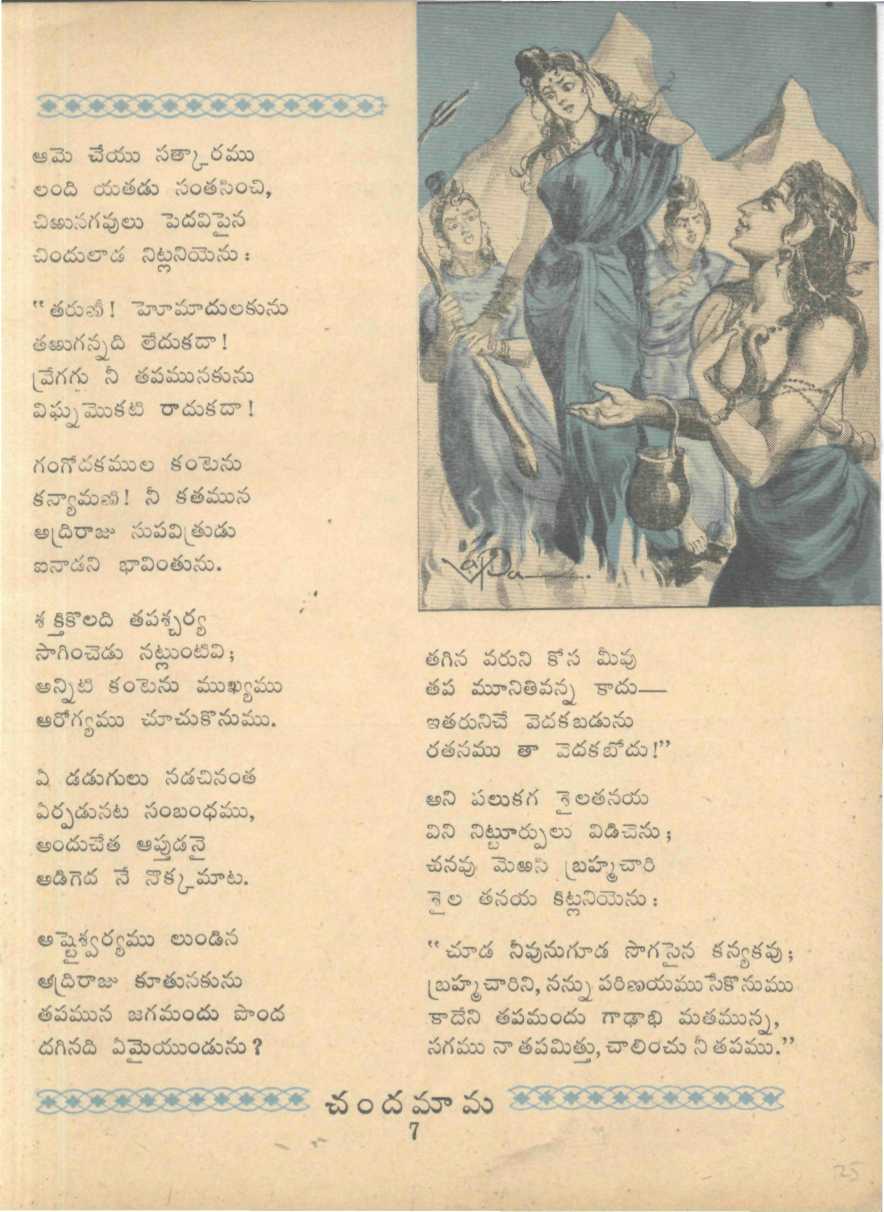 ఆమె చేయు సత్కారము
లంది యతడు సంతసించి,
చిఱునగవులు పెదవిపైన
చిందులాడ నిట్లనియెను :
“తరుణీ! హెూమాదులకును
తఱుగన్నది లేదుకదా!
వ్రేగగు నీ తపమునకును
విఘ్నమొకటి రాదుకదా!
గంగోదకముల కంటెను
కన్యామణి! నీ కతమున
అద్రిరాజు సుపవిత్రుడు
ఐనాడని భావింతును.
శక్తికొలది తపశ్చర్య
సాగించెడు నట్లుంటివి;
అన్నిటి కంటెను ముఖ్యము
ఆరోగ్యము చూచుకొనుము.
ఏ డడుగులు నడచినంత
ఏర్పడునట సంబంధము,
అందుచేత ఆప్తుడనై
అడిగెద నే నొక్కమాట.
అష్టైశ్వర్యము లుండిన
అద్రిరాజు కూతునకును
తపమున జగమందు పొంద
దగినది ఏమైయుండును?
తగిన వరుని కోస మీవు
తప మూనితివన్న కాదు—
ఇతరునిచే వెదకబడును
రతనము తా వెదకబోదు!”
అని పలుకగ శైలతనయ
విని నిట్టూర్పులు విడిచెను;
చనవు మెఱసి బ్రహ్మచారి
శైల తనయ కిట్లనియెను :
“చూడ నీవునుగూడ సొగసైన కన్యకవు;
బ్రహ్మచారిని, నన్ను పరిణయము సేకొనుము
కాదేని తపమందు గాఢాభి మతమున్న,
సగము నా తపమిత్తు, చాలించు నీ తపము.”
చందమామ
7
25